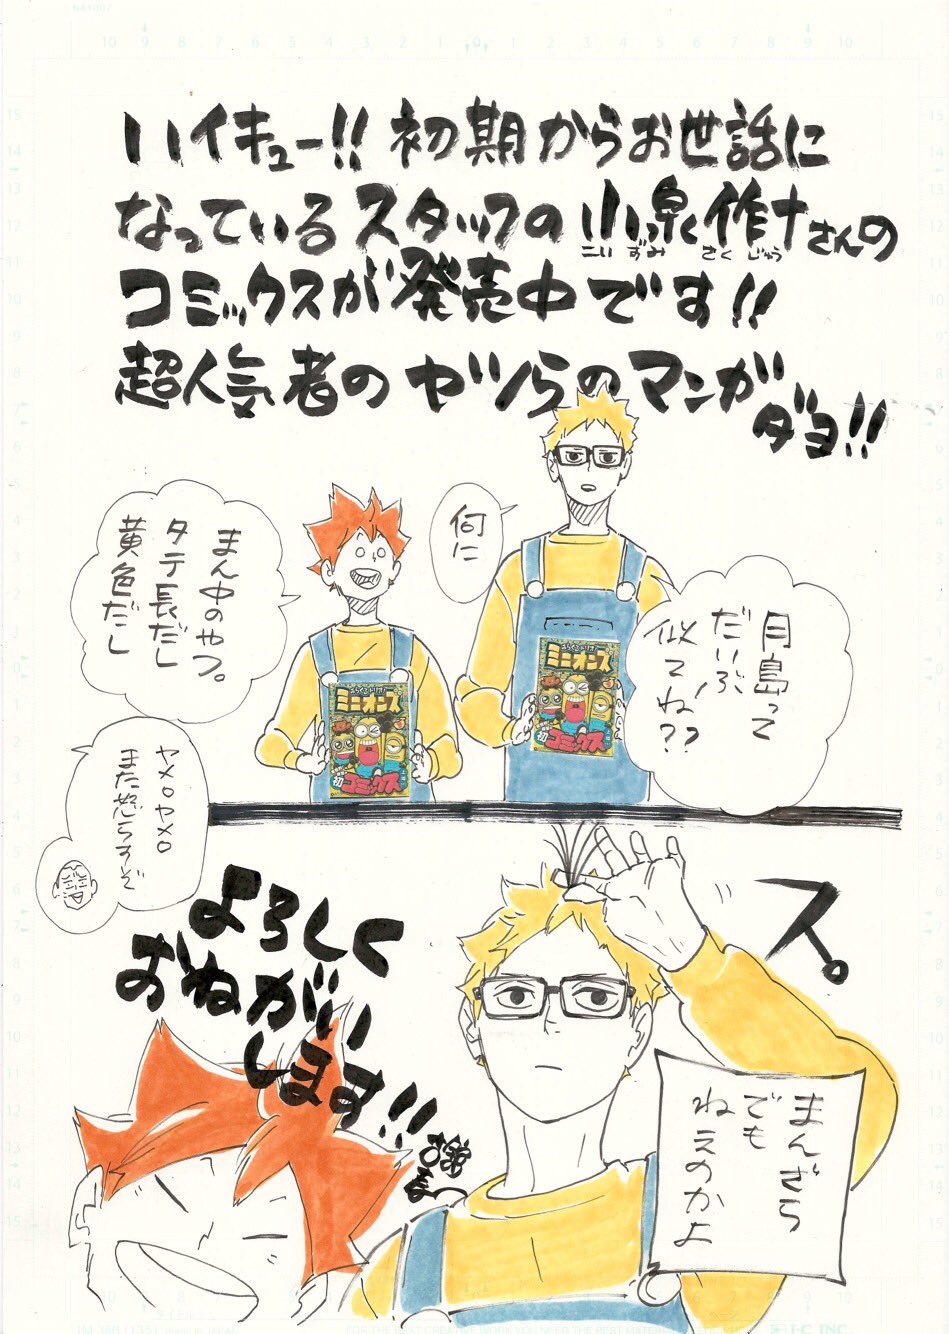 ハイキュー!! 初期からお世話に
なっているスタッフの小泉作十さんの
こいずみ さくじゅう
コミックスが発売中です!!
超人気者のヤツらのマンガ
ダヨ!!
月島って
だいぶ
似てね??
何に
まん中のやつ。
タテ長だし
黄色だし
ヤメロヤメロ
また怒らすぞ
ミニオンズ
初
コミックス
ミニオンズ
初
コミックス
ス。
まんざら
でも
ねえのかよ
よろしく
おねがい
します!!